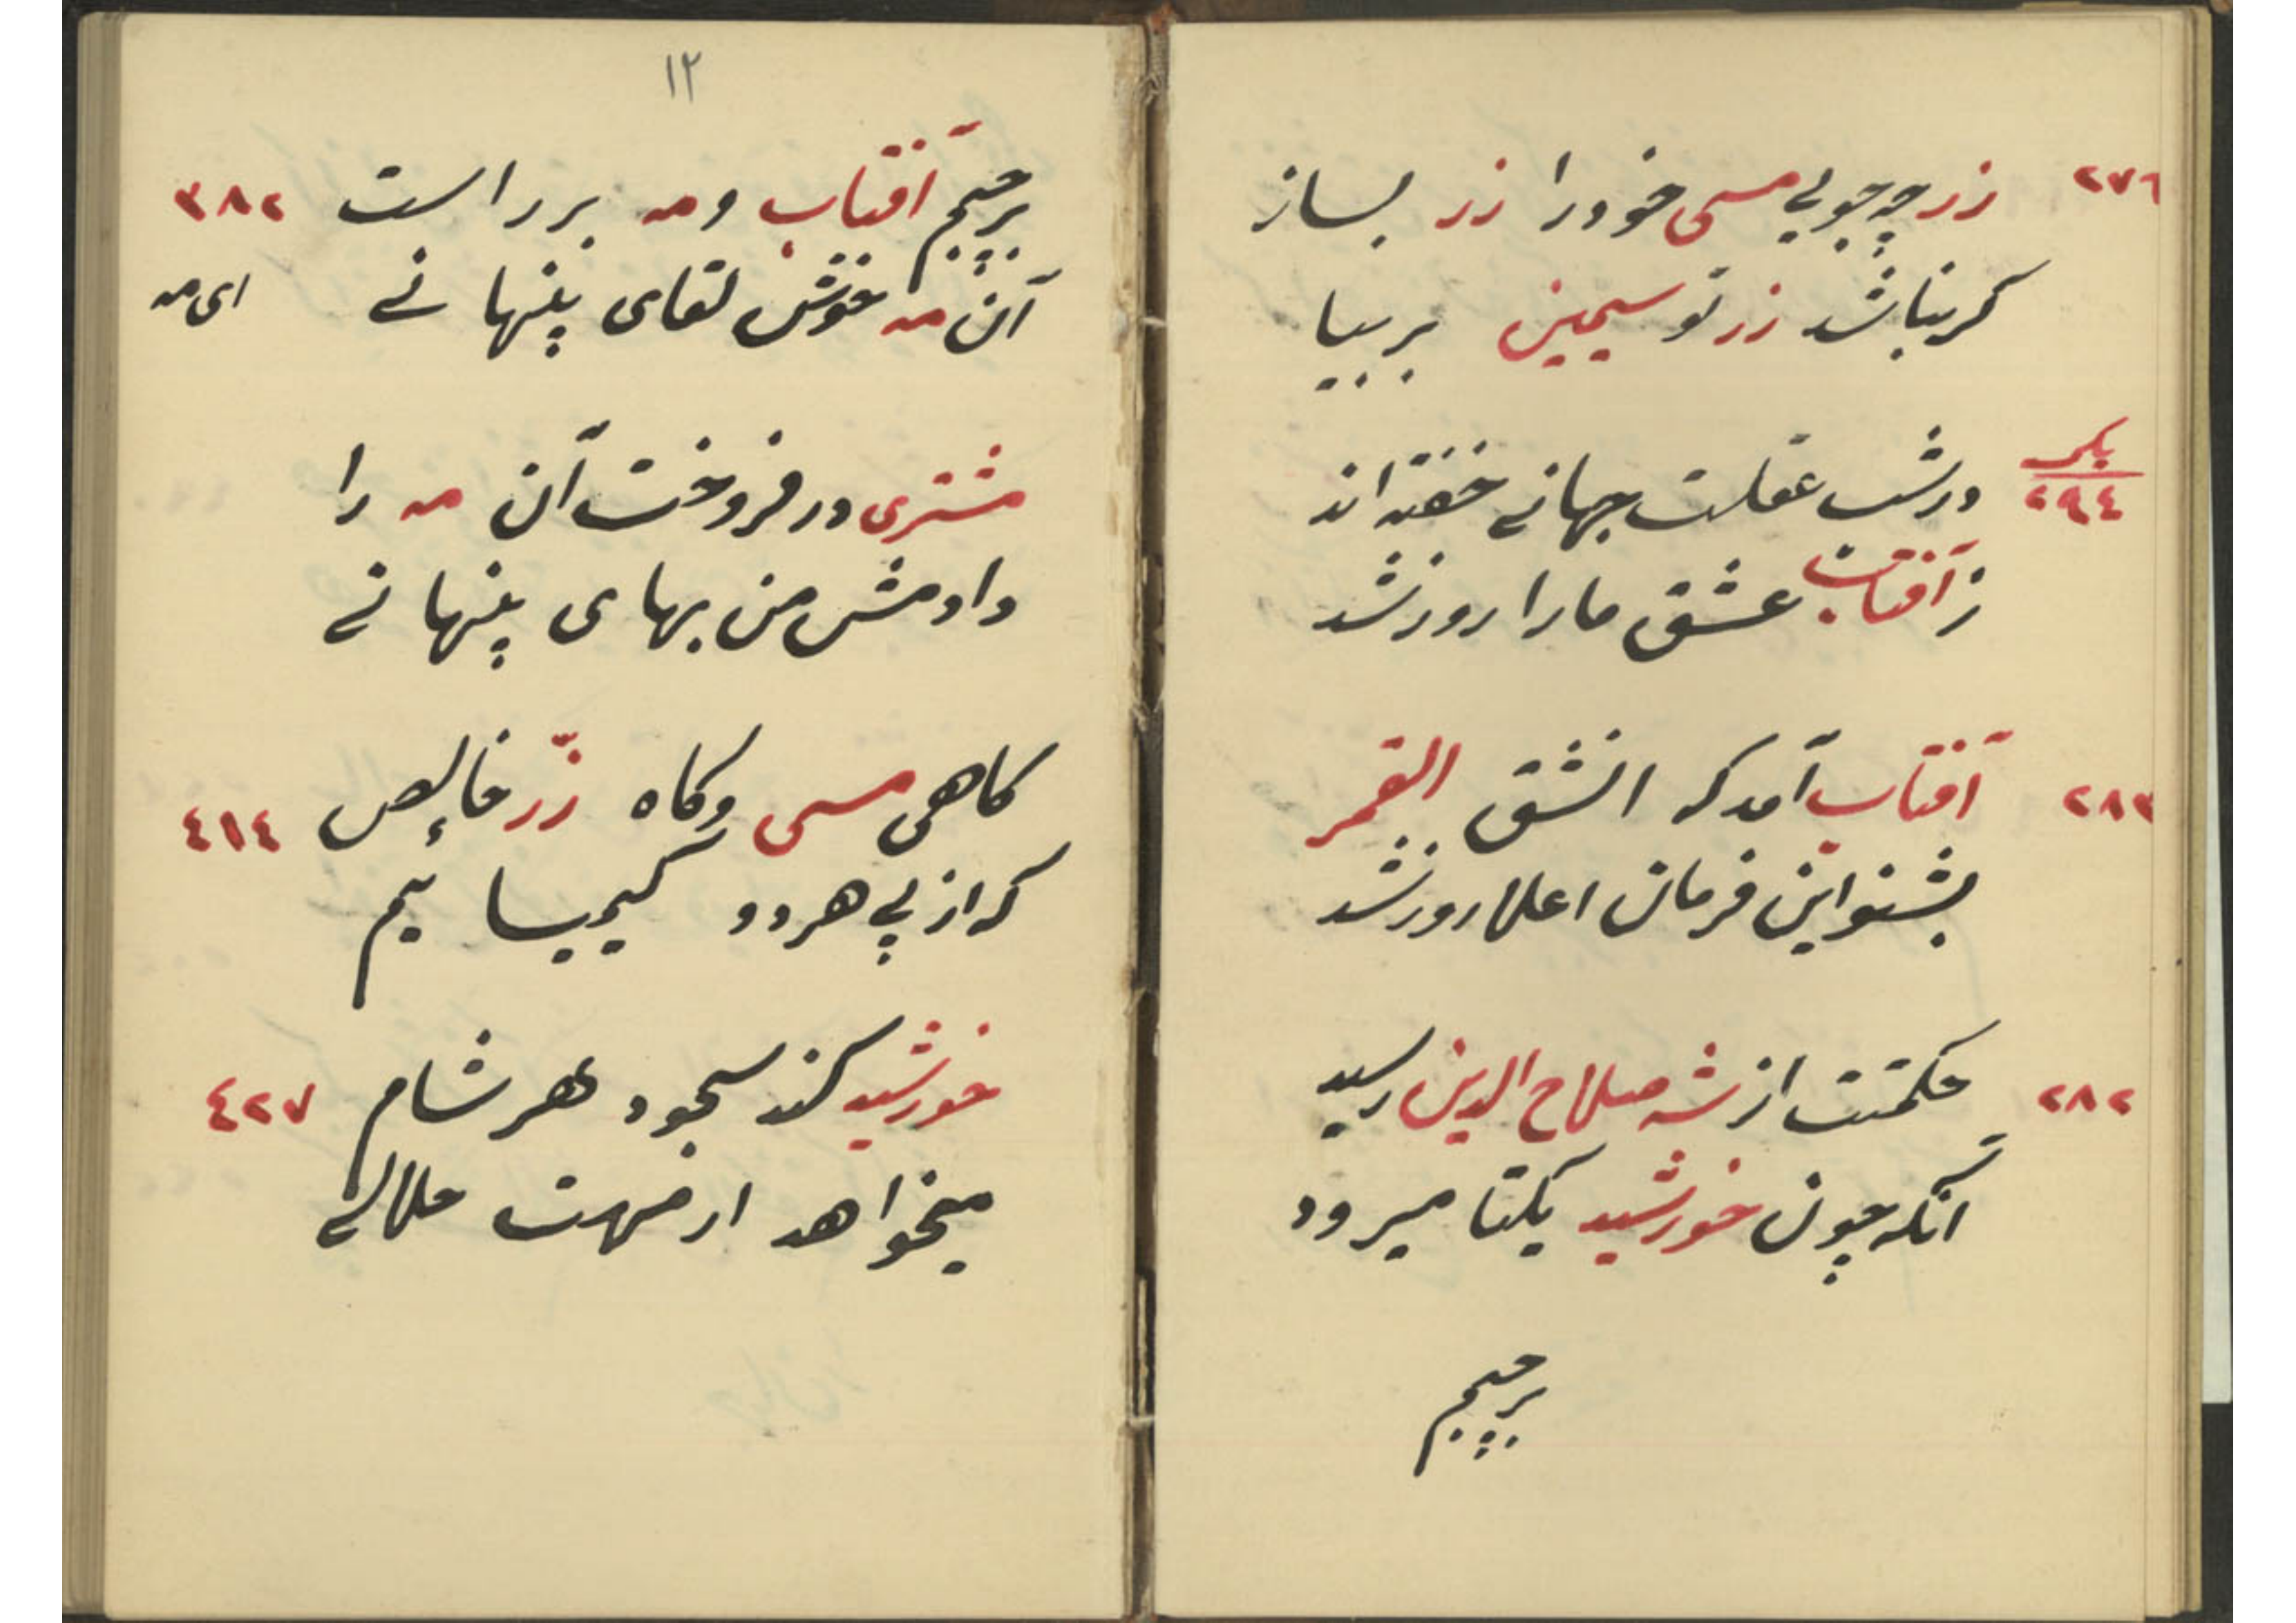 ٢٧٦ زر چه جویی مسی خود را زر بساز
کر نباشد زر تو سیمین بر بیا
بکر
٢٩٤
در شب غفلت جهانی خفته اند
ز آفتاب عشق ما را روز شد
٢٨٣ آفتاب آمد که انشق القمر
بشنو این فرمان اعلا روز شد
٢٨٢ حکمتت از شه صلاح الدین رسید
آنکه چون خورشید یکتا میرود
برچیم
١٢
برچیم آفتاب و مه بر در است ٣٨٢
آن مه خوش لقای پنهانی ای مه
مشتری در فروخت آن مه را
دادمش من بهای پنهانی
کاهی مسی و کاه زرّ خالص ٤١٤
که از پی هر دو کیمیائیم
خورشید کند سجود هر شام ٤٢٧
میخواهد از مهت هلالی